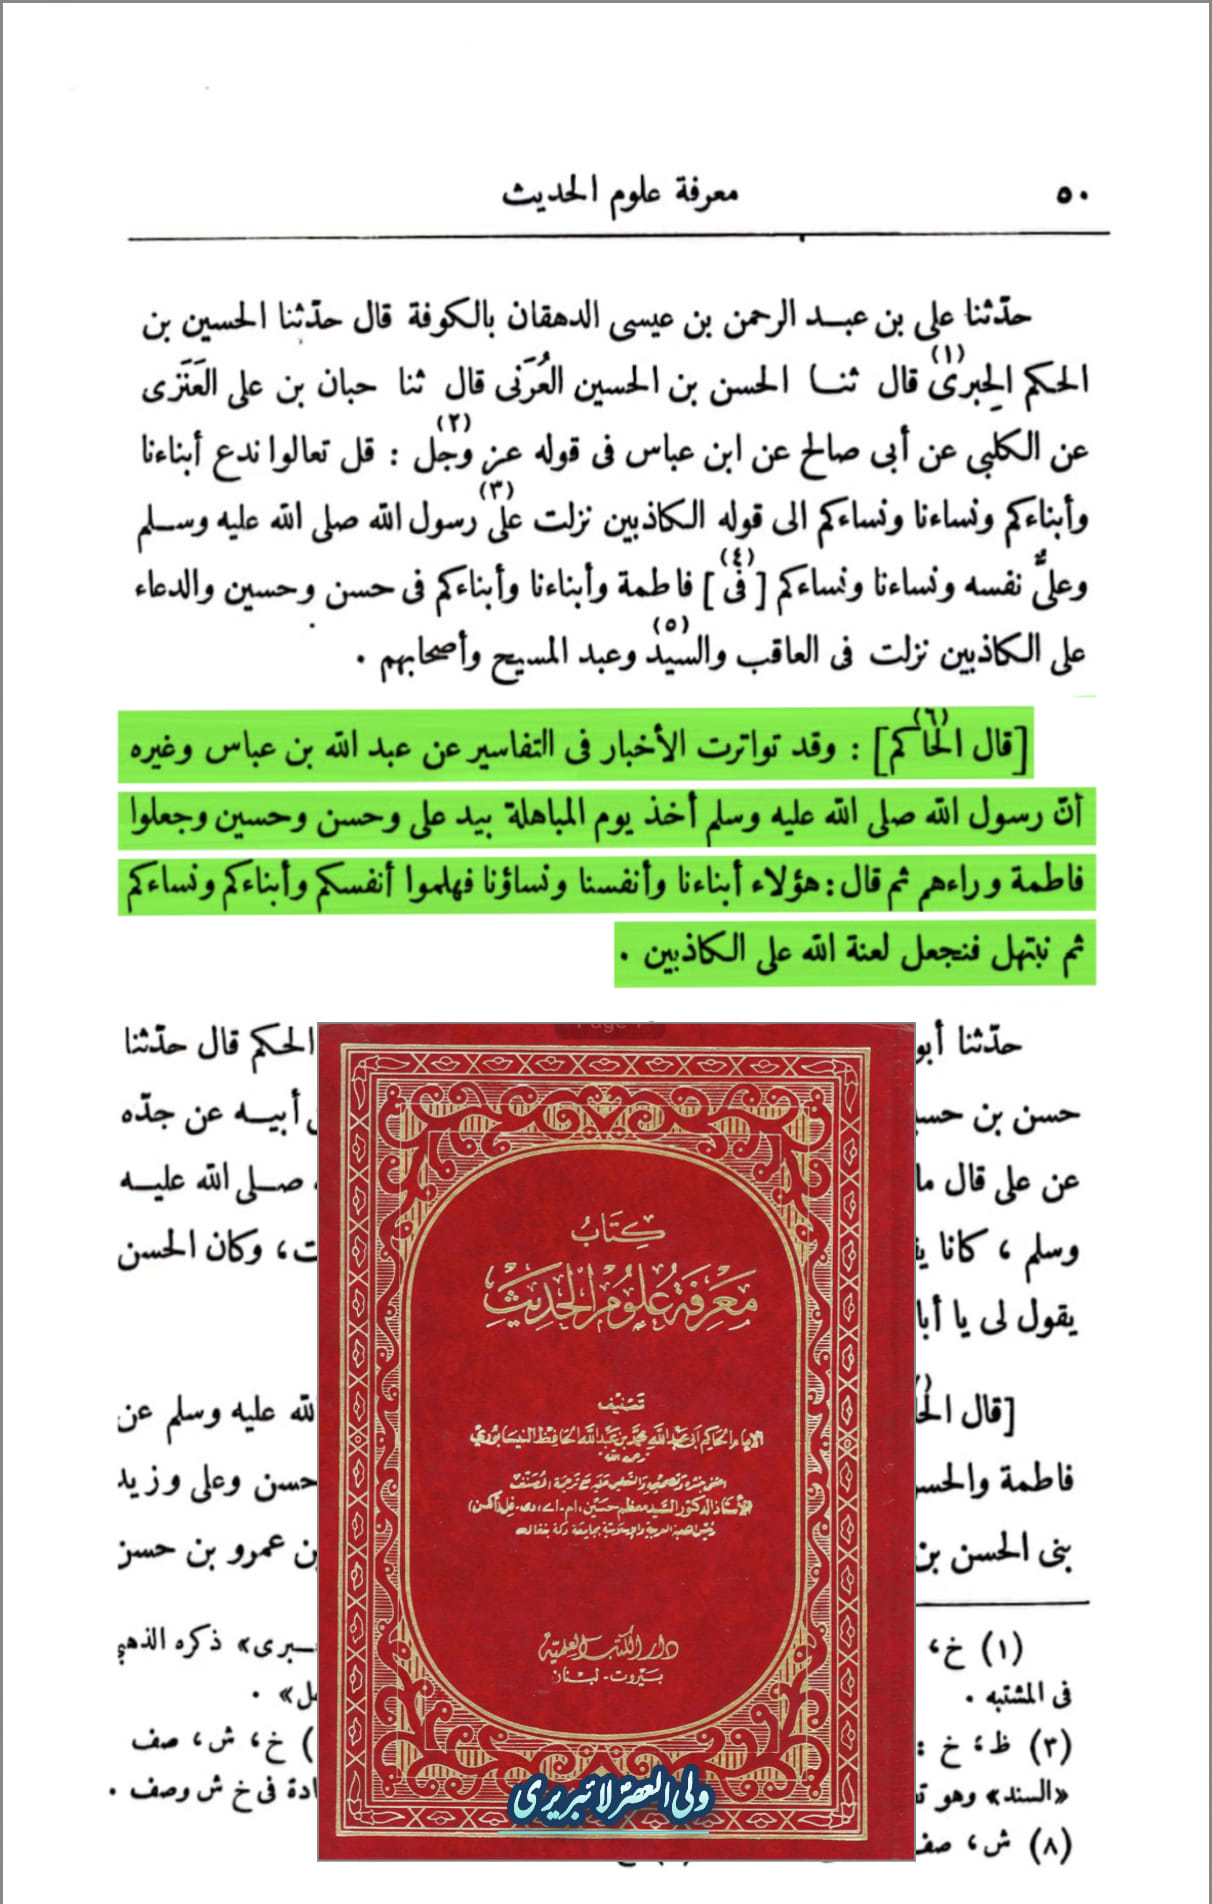 ٥٠
معرفة علوم الحديث
حدّثنا على بن عبد الرحمن بن عيسى الدهقان بالكوفة قال حدّثنا الحسين بن
الحكم الحِبرى(١) قال ثنا الحسن بن الحسين العُرَنى قال ثنا حبان بن على العَنَزى
عن الكلبى عن أبى صالح عن ابن عباس فى قوله عز وجل(٢) : قل تعالوا ندع أبناءنا
وأبناءكم ونساءنا ونساءكم الى قوله الكاذبين نزلت على(٣) رسول الله صلى الله عليه وسلم
وعلىٌّ نفسه ونساءنا ونساءكم [فى(٤)] فاطمة وأبناءنا وأبناءكم فى حسن وحسين والدعاء
على الكاذبين نزلت فى العاقب والسيد(٥) وعبد المسيح وأصحابهم .
[قال الحاكم(٦)] : وقد تواترت الأخبار فى التفاسير عن عبد الله بن عباس وغيره
أنّ رسول الله صلى الله عليه وسلم أخذ يوم المباهلة بيد على وحسن وحسين وجعلوا
فاطمة وراءهم ثم قال : هؤلاء أبناءنا وأنفسنا ونساؤنا فهلموا أنفسكم وأبناءكم ونساءكم
ثم نبتهل فنجعل لعنة الله على الكاذبين .
حدّثنا أبو الحكم قال حدّثنا
حسن بن أبيه عن جدّه
عن على قال صلى الله عليه
وسلم ، كانا وكان الحسن
يقول لى يا
[قال الله عليه وسلم عن
فاطمة حسن وعلى وزيد
بنى الحسن بن عمرو بن حسن
(١) خ، ذكره الذهبى
فى المشتبه .
(٣) ظ، خ : خ، ش، صف
«السند» وهو فى خ ش وصف .
(٨) ش، صف
كِتَابُ
مَعرِفَة عُلُوم الحَدِيث
تَصنِيف
الإمام الحاكم أبى عبد الله محمد بن عبد الله الحافظ النيسابورى
رحمه الله
الأستاذ الدكتور السيد معظم حسين، ام-اے، دى-فل (آكسن)
دار الكتب العلمية
بيروت - لبنان
ولی العصر لائبریری